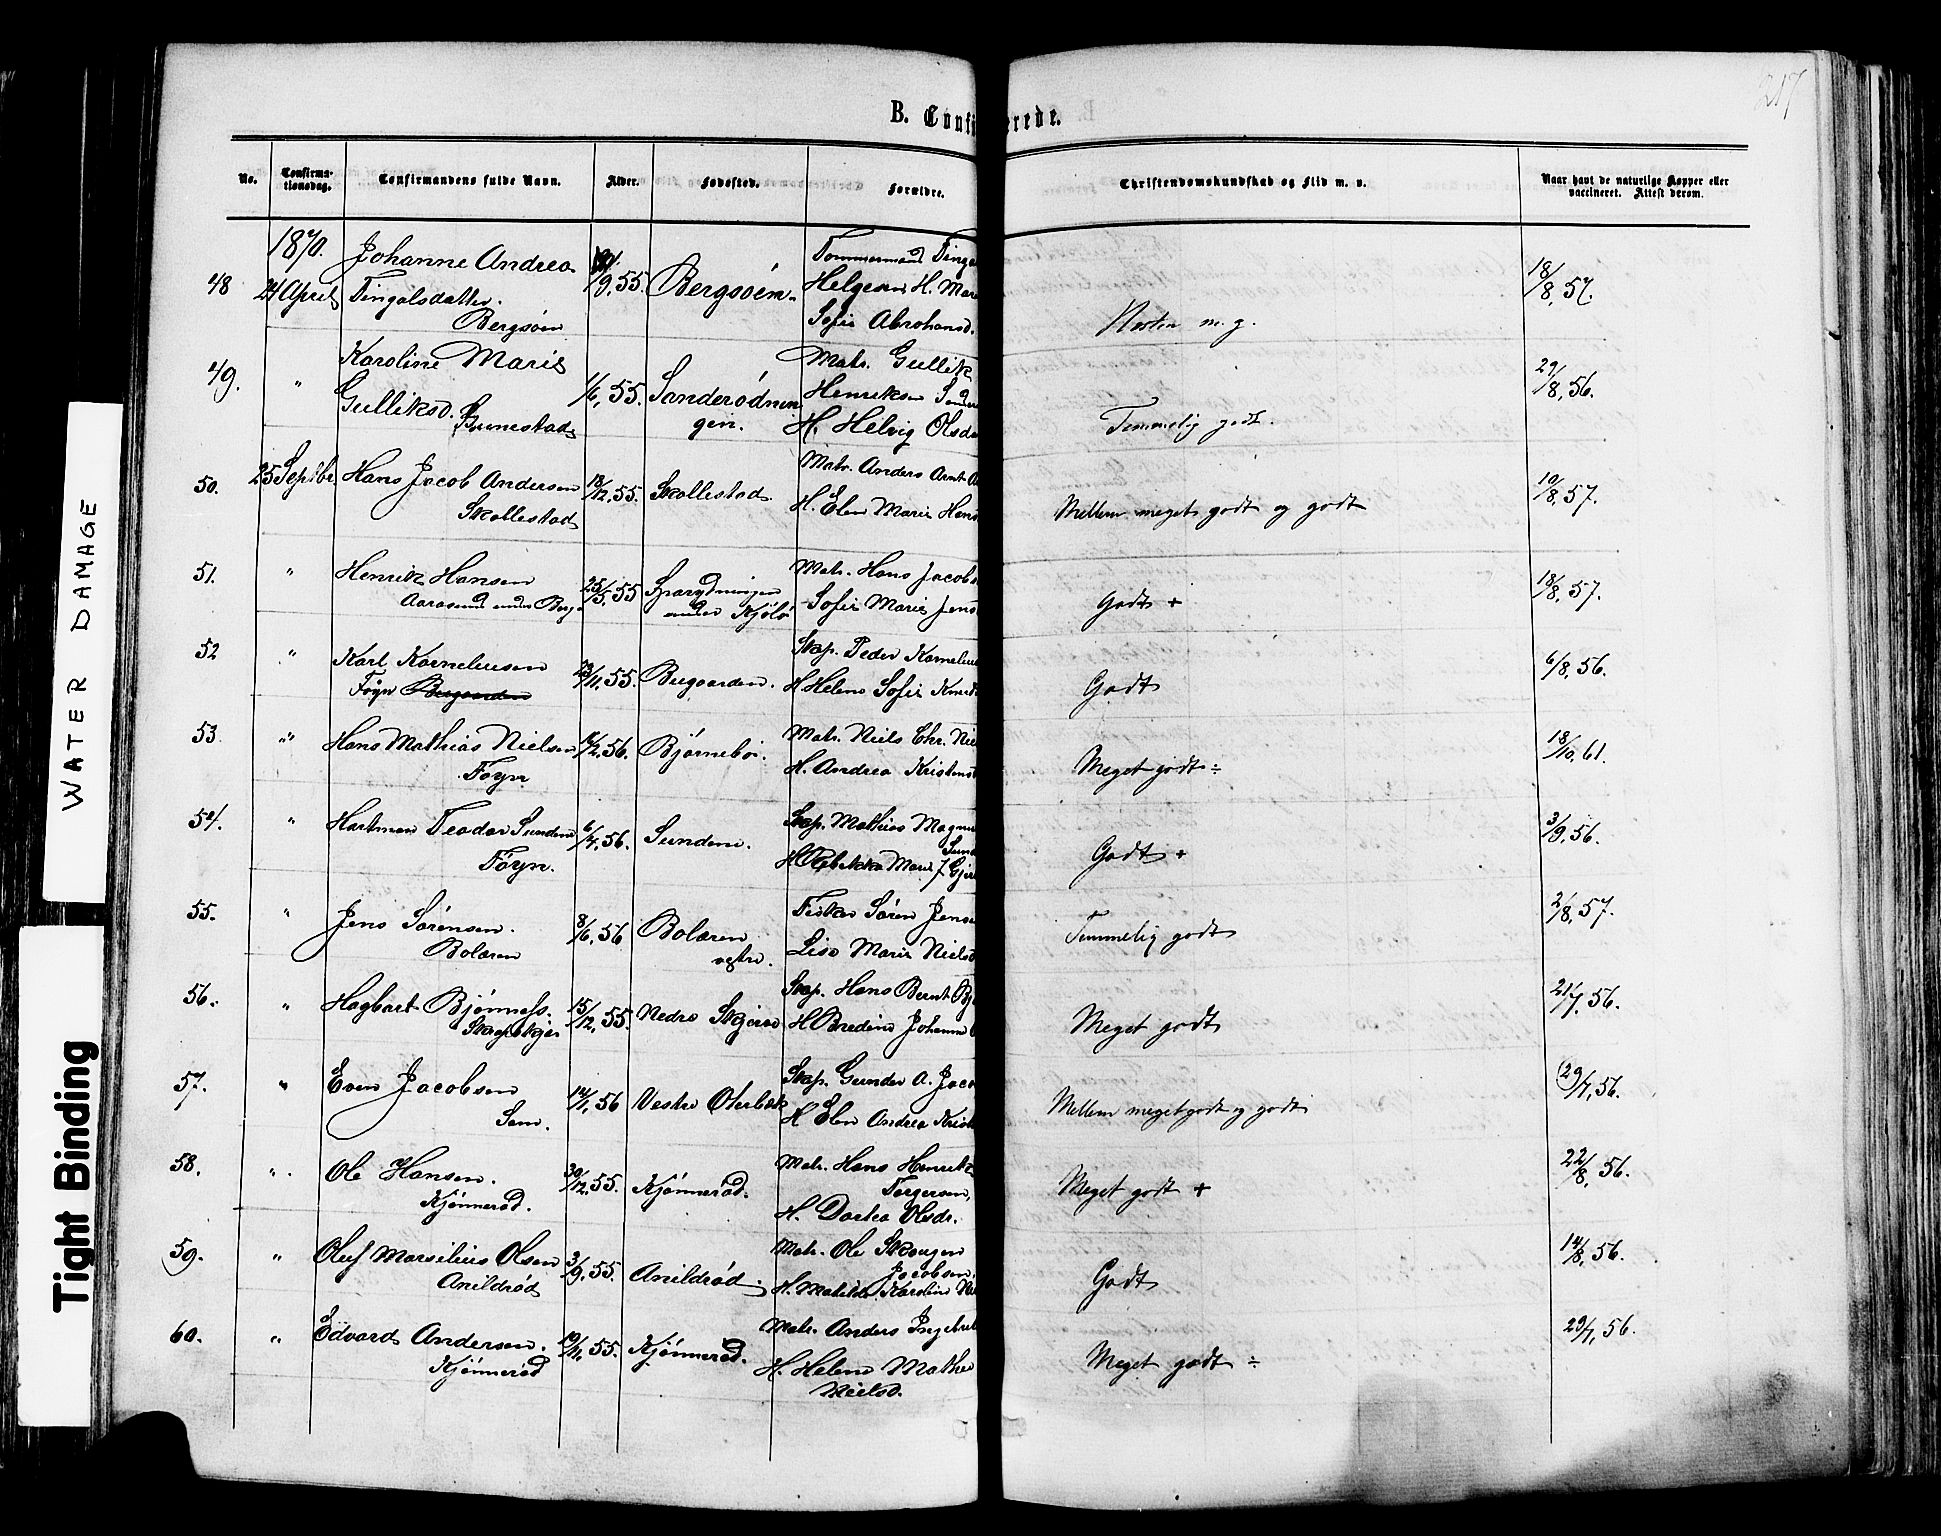 217
B. Confi erede.
No.
Confirma-
tionsdag.
Confirmandens fulde Navn.
Alder.
Fødested.
Forældre.
Christendomskundskab og Flid m. v.
Naar havt de naturlige Kopper eller
vaccineret. Attest derom.
1870.
48 24 April Johanne Andrea
Tingolsdatter.
Bergsöen
/9, 55. Bergsöen.
Tømmermand
Helgesen H.
Sofie Abrahamsd.
Næsten m. g.
18/8, 57.
49. " Karoline Marie
Gulliksd.
1/6, 55.
gen.
Matr. Gullik
Henriksen
H. Helvig Olsd
Temmelig godt.
29/8, 56.
50. 25 Septbr Hans Jacob Andersen
Skallestad
18/12, 55. Skallestad.
Matr. Anders Arnt
H. Elen Marie Hans
Mellem meget godt og godt
10/8, 57.
51. " Henrik Hansen
Aarøsund under
25/5, 55
under Kjölö
Matr. Hans Jacob
Sofie Marie Jens
Godt +
18/8, 57.
52 " Karl Korneliusen
Föyn
/11, 55. Buegaarden.
Skap. Peder Kornelius
H Helene Sofie Knud
Godt
6/8, 56.
53 " Hans Mathias Nielsen
Föyn
/2, 56. Bjørnebö.
Matr. Niels Chr. Nie
H. Andrea Kristens
Meget godt ÷
18/10, 61.
54. " Hartman Teodor Sundene
Föyn.
6/4, 56. Sundene.
Skap. Mathias Magnu
H Rebekka Marie J Gjer
Godt +
3/9, 56.
55. " Jens Sörensen.
Bolæren
8/6, 56 Bolæren
vestre.
Fisker Sören Jens
Lise Marie Niels
Temmelig godt
2/8, 57.
56. " Hagbart Bjönness.
15/12, 55. Nedre
Skap. Hans Bernt Bj
H Bredine Johanne
Meget godt
21/7, 56.
57. " Even Jacobsen
Sem.
14/1, 56 Vestre Oterbæk
Skap. Gunder A. Jaco
H Elen Andrea Krist
Mellem meget godt og godt
29/7, 56.
58. " Ole Hansen.
Kjönneröd.
30/12, 55. Kjönneröd.
Matr. Hans Henrik
Torgersen,
H. Dortea Olsdr.
Meget godt +
22/8, 56.
59. " Oluf Marsilius Olsen
Anildröd
3/9, 55. Anildröd.
Matr. Ole Skougen
Jacobsen.
H. Matilde Karoline
Godt
14/8, 56.
60. " Edvard Andersen.
Kjönneröd
19/11, 55. Kjönneröd.
Matr. Anders Ingebret
H. Helene Mathea
Nielsd.
Meget godt ÷
29/7, 56.
WATER DAMAGE
Tight Binding